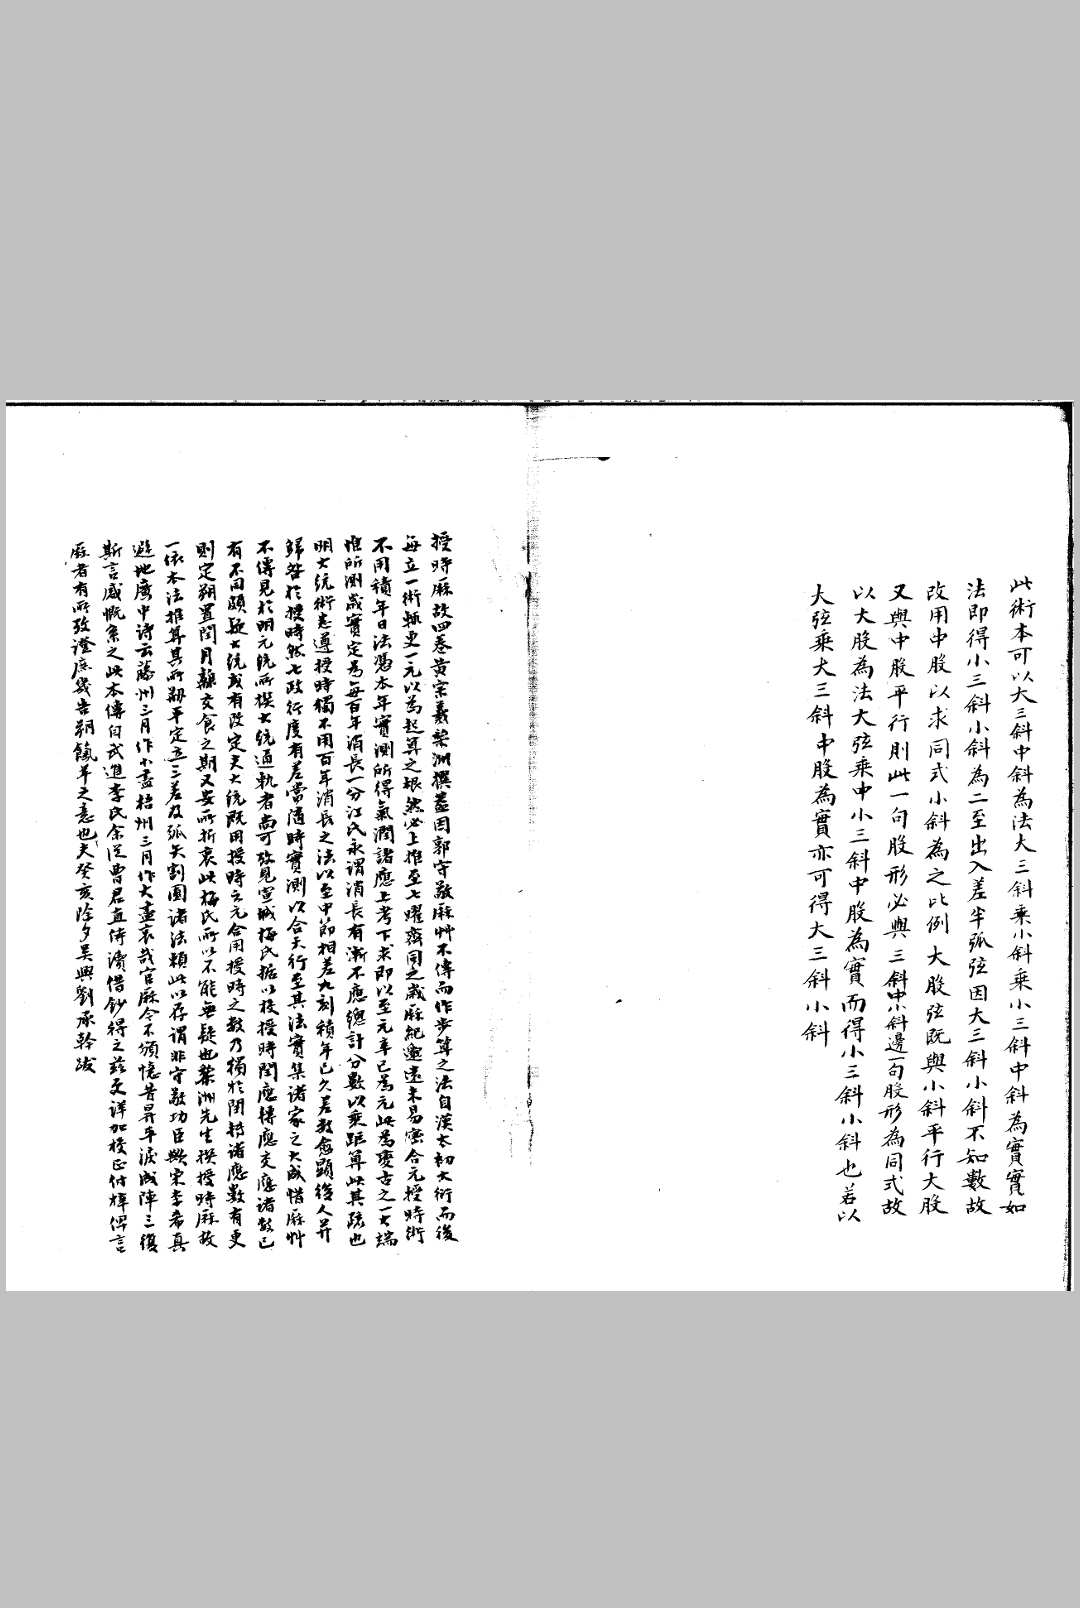 此術本可以大三斜中斜為法大三斜乘小斜乘小三斜中斜為實實如
法即得小三斜小斜為二至出入差半弧弦因大三斜小斜不知數故
改用中股以求同式小斜為之比例大股弦既與小斜平行大股
又與中股平行則此一句股形必與三斜中小斜邊一句股形為同式故
以大股為法大弦乘中小三斜中股為實而得小三斜小斜也若以
大弦乘大三斜中股為實亦可得大三斜小斜
授時厤故四卷黃宗羲棃洲撰蓋因郭守敬厤艸不傳而作步算之法自漢太初大衍而後
每立一術輒更一元以為起算之根然必上推至七曜齊同之歲厤紀邈遠未易密合元授時術
不用積年日法憑本年實測所得氣潤諸應上考下求即以至元辛巳為元此為變古之一大端
惟所測歲實定為每百年消長一分江氏永謂消長有漸不應總計分數以乘距算此其疏也
明大統術悉遵授時獨不用百年消長之法以至中節相差九刻積年已久差數愈顯後人并
歸咎於授時然七政行度有差當隨時實測以合天行至其法實集諸家之大成惜厤艸
不傳見於明元統所撰大統通軌者尚可攷見宣城梅氏據以校授時閏應轉應交應諸數已
有不同頗疑大統或有改定夫大統既用授時之元合用授時之數乃獨於閏轉諸應數有更
則定朔置閏月離交食之期又安所折衷此梅氏所以不能無疑也棃洲先生撰授時厤故
一依本法推算其所剏平定立三差及弧矢割圓諸法賴此以存謂非守敬功臣歟宋李希真
避地廣中詩云藤州三月作小盡梧州三月作大盡哀哉官厤今不頒憶昔昇平淚成陣三復
斯言感慨系之此本傳自武進李氏余從曹君直侍讀借鈔得之茲更詳加校正付梓俾言
厤者有所攷證庶幾告朔餼羊之意也夫癸亥除夕吳興劉承幹跋